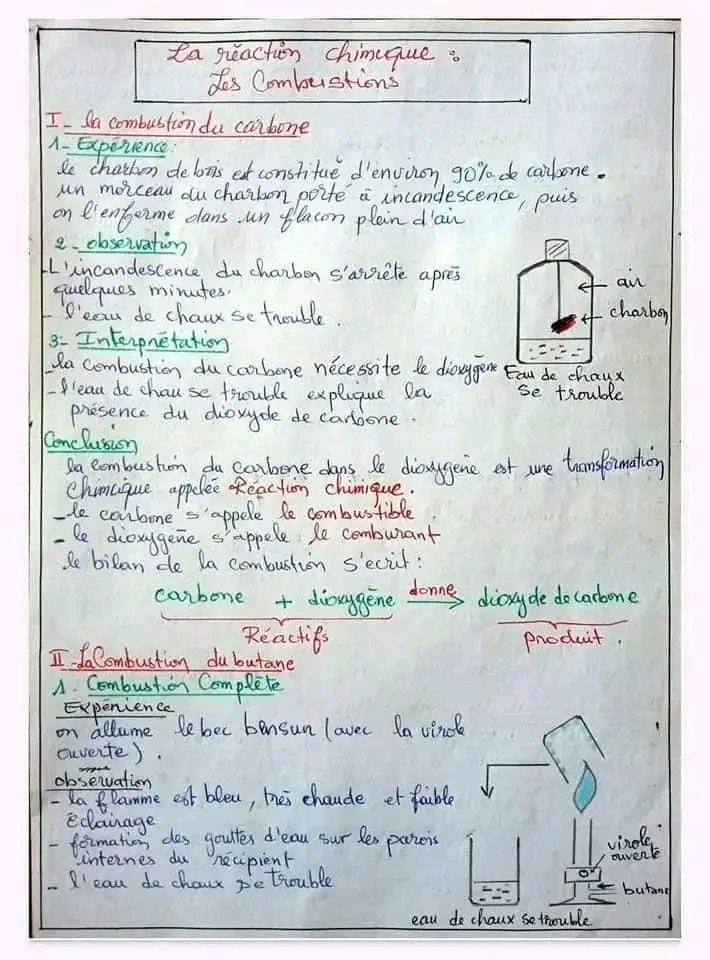 La réaction chimique :
Les Combustions
I - la combustion du carbone
1 - Expérience:
le charbon de bois est constitué d'environ 90% de carbone.
un morceau du charbon porté à incandescence, puis
on l'enferme dans un flacon plein d'air
2 - observation
- L'incandescence du charbon s'arrête après
quelques minutes.
- l'eau de chaux se trouble.
air
charbon
Eau de chaux
se trouble
3 - Interprétation
- la combustion du carbone nécessite le dioxygène
- l'eau de chau se trouble explique la
présence du dioxyde de carbone.
Conclusion
la combustion du carbone dans le dioxygène est une transformation
chimique appelée Réaction chimique.
- le carbone s'appele le combustible.
- le dioxygène s'appele : le comburant
le bilan de la combustion s'ecrit :
carbone + dioxygène donne → dioxyde de carbone
Réactifs produit.
II - La Combustion du butane
1 - Combustion Complète
Expérience
on allume le bec bensun (avec la virole
ouverte).
observation
- la flamme est bleu, très chaude et faible
éclairage
- formation des gouttes d'eau sur les parois
internes du récipient
- l'eau de chaux se trouble
virole
ouverte
butane
eau de chaux se trouble